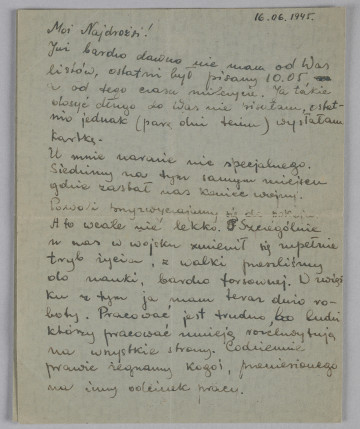 16.06.1945.
Moi Najdrożsi!
Już bardzo dawno nie mam od Was
listów, ostatni był pisany 10.05
a od tego czasu milczycie. Ja także
dosyć długo do Was nie pisałam, ostat-
nio jednak (parę dni temu) wysłałam
kartkę.
U mnie narazie nic specjalnego.
Siedzimy na tym samym miejscu
gdzie zastał nas koniec wojny.
Powoli przyzwyczajamy się do
A to wcale nie lekko. Szczególnie
u nas w wojsku zmienił się zupełnie
tryb życia, z walki przeszliśmy
do nauki, bardzo forsownej. W związ-
ku z tym ja mam teraz dużo ro-
boty. Pracować jest trudno bo ludzi
którzy pracować umieją rozchwytują
na wszystkie strony. Codziennie
prawie żegnamy kogoś, przeniesionego
na inny odcinek pracy.